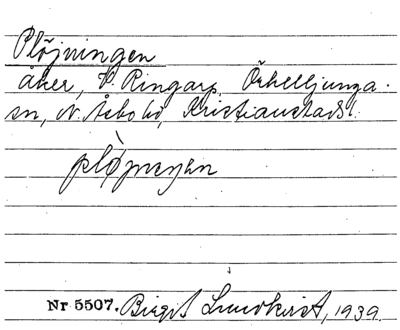 Plöjningen
åker, V. Ringarp, Örkelljunga
sn, N. Åsbo hd, Kristianstads l.
plø̀jneŋen
Nr 5507. Birgit Lundkvist, 1939.